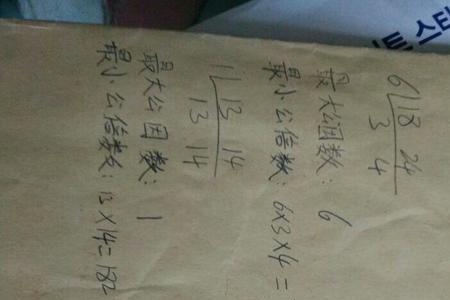 6 18 24
3 4
最大公因数: 6
最小公倍数: 6×3×4=
1 13 14
13 14
最大公因数: 1
最小公倍数: 13×14=182